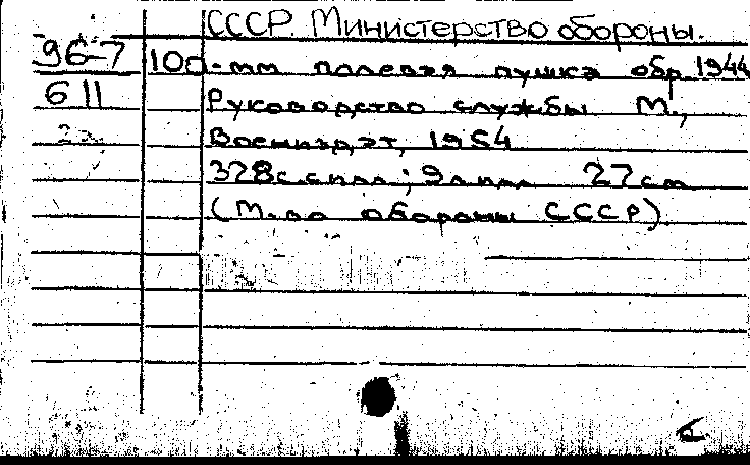 СССР. Министерство обороны.
96-7 100-мм полевая пушка обр. 1944
611 Руководство службы М.,
Воениздат, 1954
328с. с илл.; 9 л илл 27 см
(М-во обороны СССР)